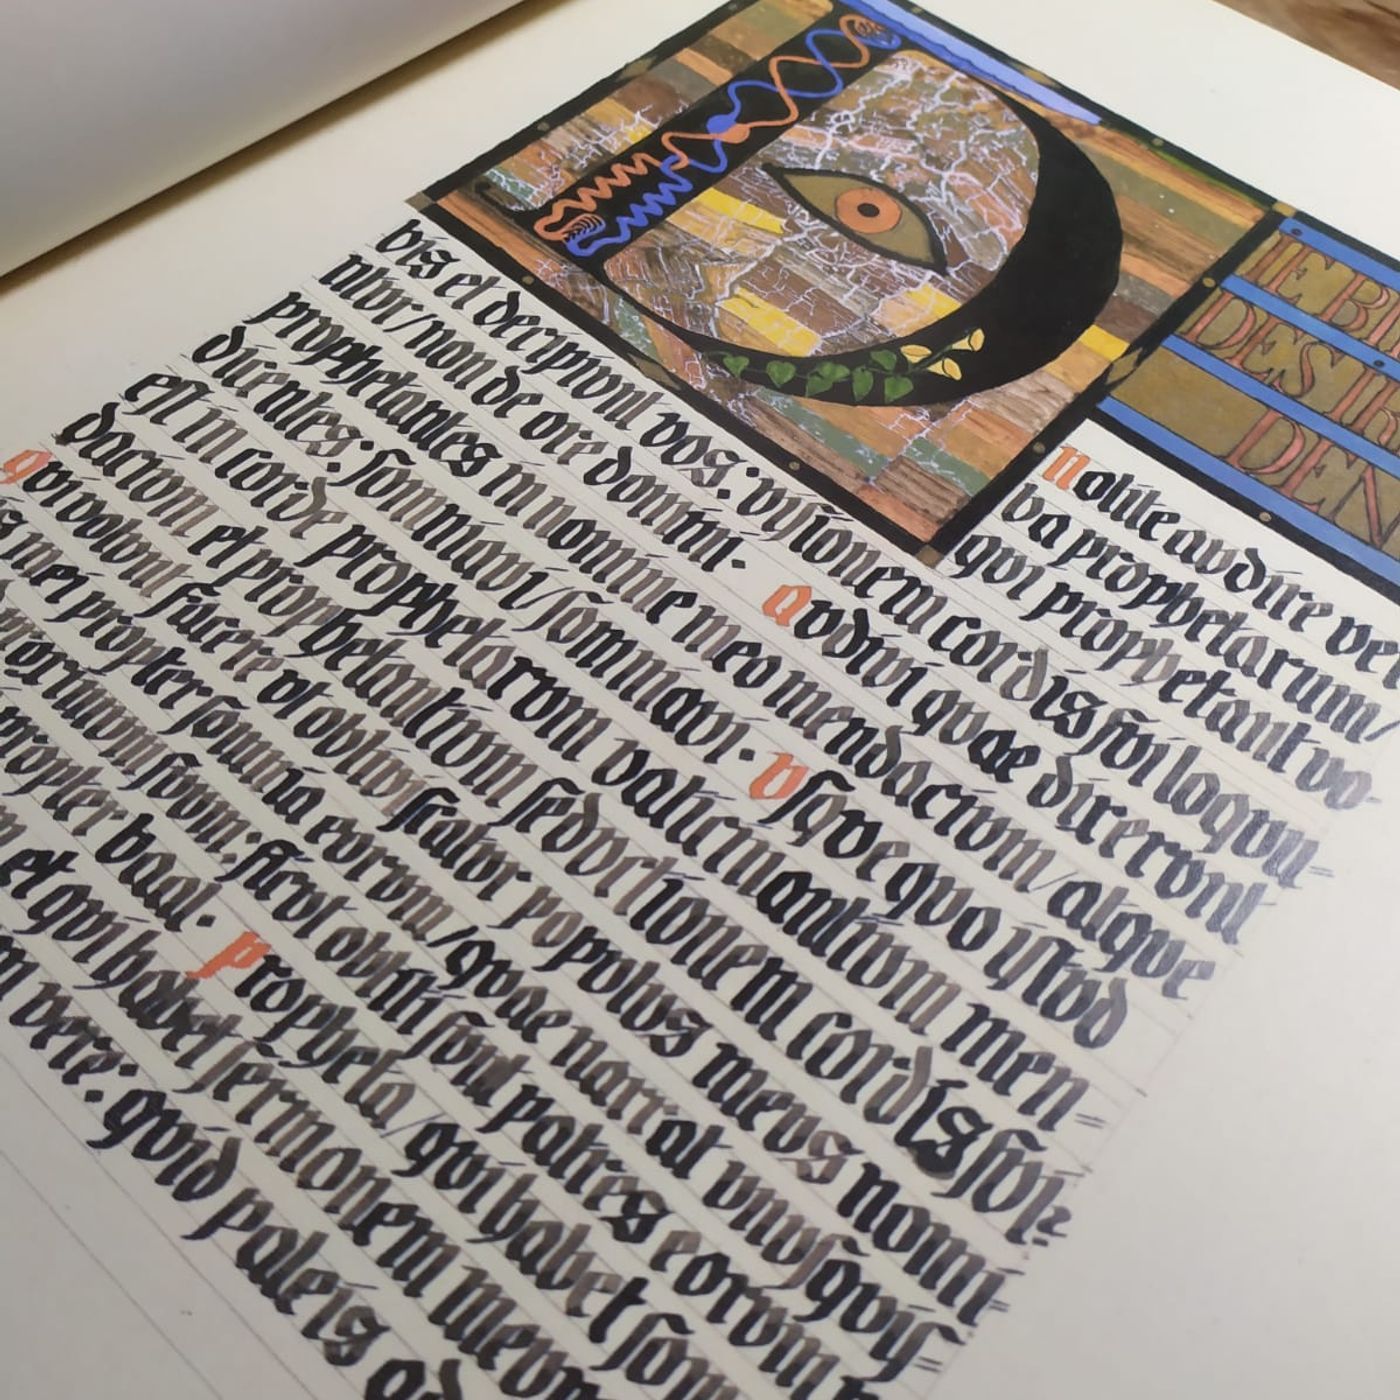 IEBI
DES IR
DEN
Nolite audire ve
ba prophetarum/
qui prophetant vo-
bis et decipiunt vos: visionem cordis sui loquu=
ntur/ non de ore domini. Audivi quae dixerunt
prophetantes in nomine meo mendacium/ atque
dicentes: somniavi/ somniavi. Usque quo istud
est in corde prophetarum vaticinantium men=
dacium et prophetantium seductionem cordis sui:
Qui volunt facere ut obliviscatur populus meus nomi=
is mei propter somnia eorum/ quae narrat unusquis=
proximum suum: sicut obliti sunt patres eorum
propter baal. Propheta/ qui habet som
et qui habet sermonem meum
vere: quid paleis ad